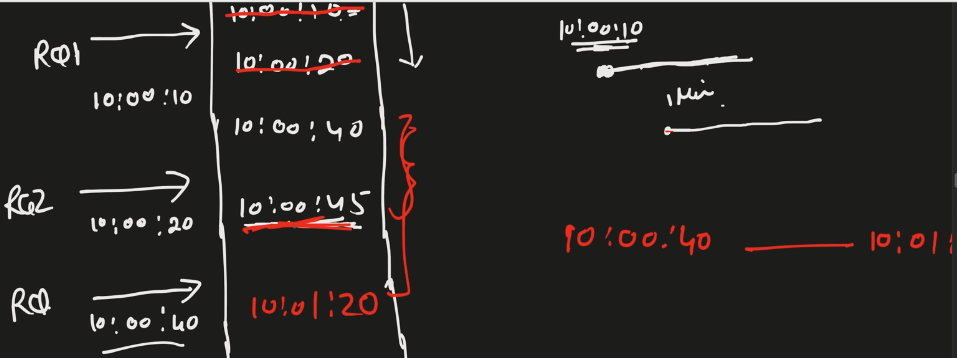 10:00:10
RQ1
10:00:20
10:00:10
10:00:40
RQ2
10:00:20
10:00:45
RQ
10:00:40
10:01:20
10:00:10
1 Min.
10:00:40
10:01: